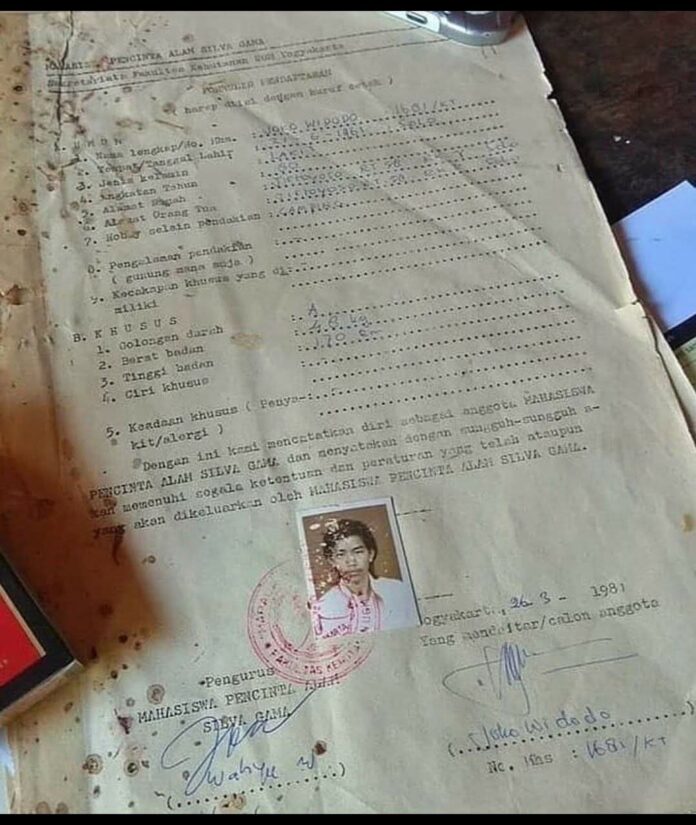 MAHASISWA PENCINTA ALAM SILVA GAMA
Sekretariat: Fakultas Kehutanan UGM Yogyakarta
FORMULIR PENDAFTARAN
( harap diisi dengan huruf cetak )
U M U M
1. Nama lengkap/No. Mhs. : JOKO WIDODO 1681/KT
2. Tempat/Tanggal Lahir : 21 6 1961 SOLO
3. Jenis kelamin : LAKI
4. Angkatan Tahun : 80
5. Alamat Rumah
6. Alamat Orang Tua
7. Hobby selain pendakian : CAMPING
8. Pengalaman pendakian
( gunung mana saja )
9. Kecakapan khusus yang di-
miliki
B. K H U S U S
1. Golongan darah : A
2. Berat badan : 48 kg
3. Tinggi badan : 170 cm
4. Ciri khusus
5. Keadaan khusus ( Penya-
kit/alergi )
Dengan ini kami mencatatkan diri sebagai anggota MAHASISWA
PENCINTA ALAM SILVA GAMA dan menyatakan dengan sungguh-sungguh a-
kan memenuhi segala ketentuan dan peraturan yang telah ataupun
yang akan dikeluarkan oleh MAHASISWA PENCINTA ALAM SILVA GAMA.
Yogyakarta, 26 3 - 1981
Yang mendaftar/calon anggota
Pengurus
MAHASISWA PENCINTA ALAM
SILVA GAMA
FAKULTAS KEHUTANAN UGM
(Wahyu W)
(Joko Widodo)
No. Mhs : 1681/KT